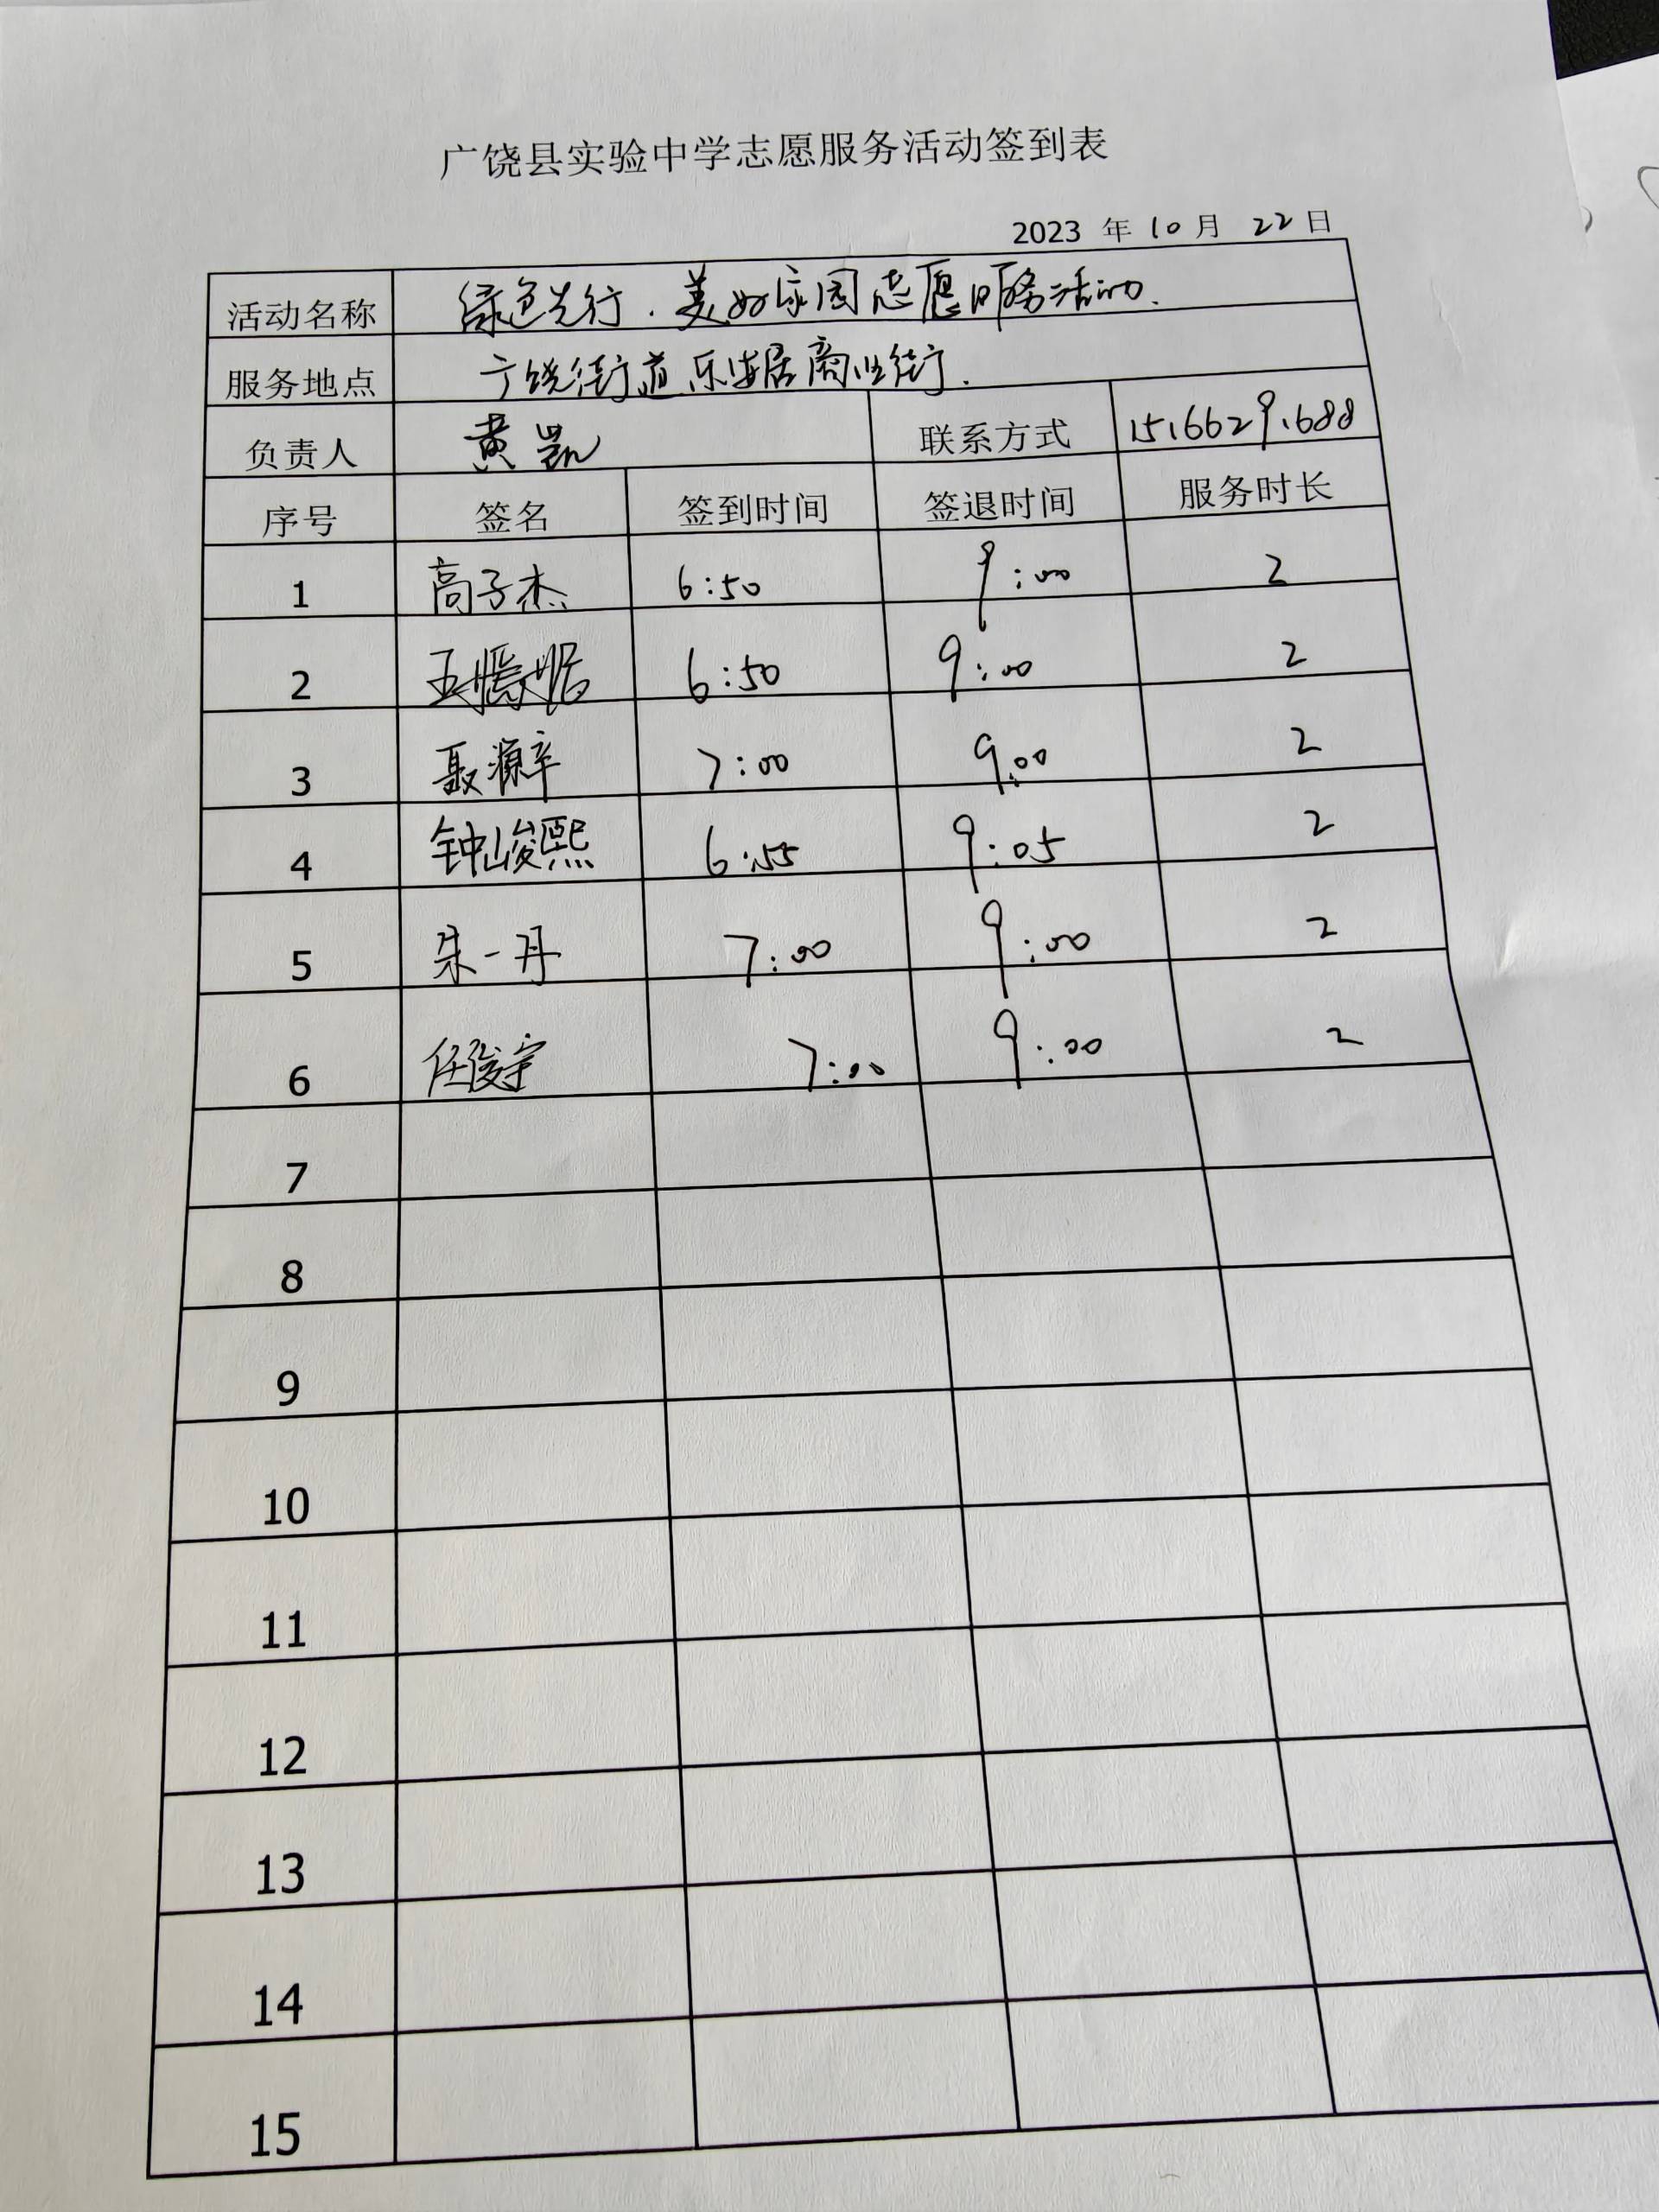 广饶县实验中学志愿服务活动签到表
2023 年 10 月 22 日
活动名称 绿色先行.美好家园志愿服务活动.
服务地点 广饶街道乐安居商业街.
负责人 黄凯 联系方式 15166291688
序号 签名 签到时间 签退时间 服务时长
1 高子杰 6:50 9:00 2
2 6:50 9:00 2
3 聂源辛 7:00 9:00 2
4 钟峻熙 6:55 9:05 2
5 朱一丹 7:00 9:00 2
6 任俊宇 7:00 9:00 2
7
8
9
10
11
12
13
14
15